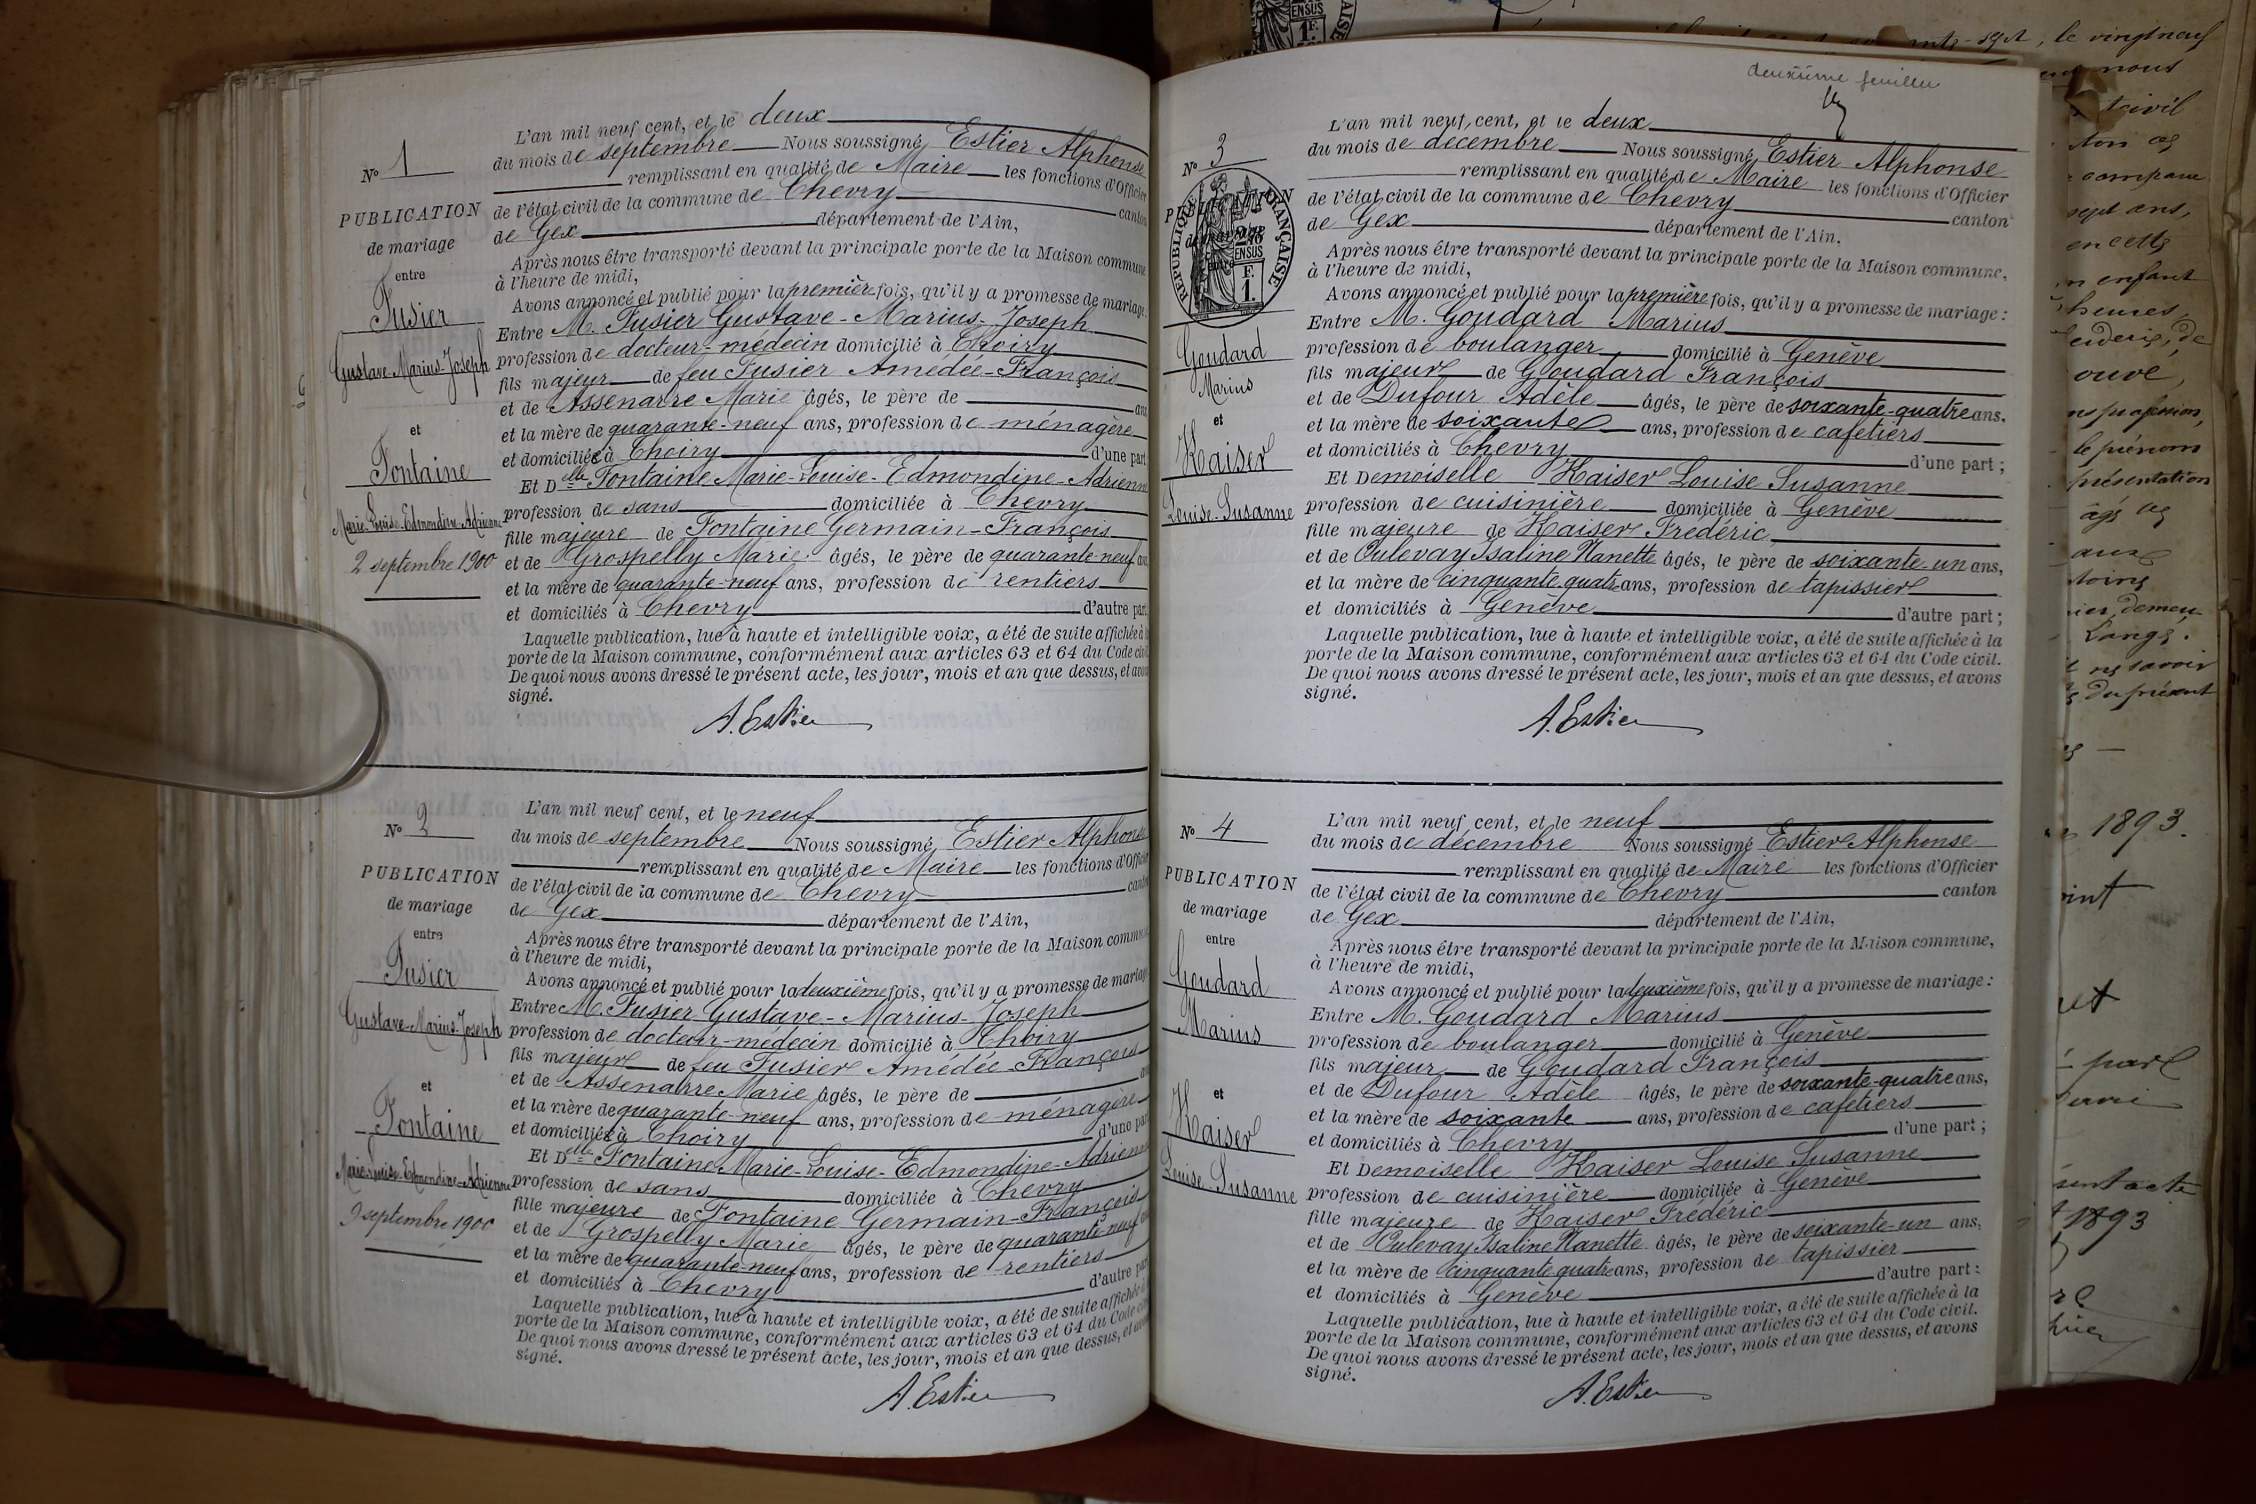 N° 1
PUBLICATION
de mariage
entre
Fusier
Gustave-Marius-Joseph
et
Fontaine
Marie-Louise-Edmondine-Adrienne
2 septembre 1900
L'an mil neuf cent, et le deux
du mois de septembre Nous soussigné, Estier Alphonse
remplissant en qualité de Maire les fonctions d'Officier
de l'état civil de la commune de Chevry canton
de Gex département de l'Ain,
Après nous être transporté devant la principale porte de la Maison commune
à l'heure de midi,
Avons annoncé et publié pour la première fois, qu'il y a promesse de mariage
Entre M. Fusier Gustave-Marius-Joseph
profession de docteur-médecin domicilié à Thoiry
fils majeur de feu Fusier Amédée-François
et de Assenarre Marie âgés, le père de ans
et la mère de quarante-neuf ans, profession de ménagère
et domiciliée à Thoiry d'une part
Et Delle Fontaine Marie-Louise-Edmondine-Adrienne
profession de sans domiciliée à Chevry
fille majeure de Fontaine Germain-François
et de Grospelly Marie âgés, le père de quarante-neuf ans
et la mère de quarante-neuf ans, profession de rentiers
et domiciliés à Chevry d'autre part
Laquelle publication, lue à haute et intelligible voix, a été de suite affichée à la
porte de la Maison commune, conformément aux articles 63 et 64 du Code civil
De quoi nous avons dressé le présent acte, les jour, mois et an que dessus, et avons
signé.
A. Estier
N° 2
PUBLICATION
de mariage
entre
Fusier
Gustave-Marius-Joseph
et
Fontaine
Marie-Louise-Edmondine-Adrienne
9 septembre 1900
L'an mil neuf cent, et le neuf
du mois de septembre Nous soussigné, Estier Alphonse
remplissant en qualité de Maire les fonctions d'Officier
de l'état civil de la commune de Chevry canton
de Gex département de l'Ain,
Après nous être transporté devant la principale porte de la Maison commune
à l'heure de midi,
Avons annoncé et publié pour la deuxième fois, qu'il y a promesse de mariage
Entre M. Fusier Gustave-Marius-Joseph
profession de docteur-médecin domicilié à Thoiry
fils majeur de feu Fusier Amédée-François
et de Assenarre Marie âgés, le père de ans
et la mère de quarante-neuf ans, profession de ménagère
et domiciliée à Thoiry d'une part
Et Delle Fontaine Marie-Louise-Edmondine-Adrienne
profession de sans domiciliée à Chevry
fille majeure de Fontaine Germain-François
et de Grospelly Marie âgés, le père de quarante-neuf
et la mère de quarante-neuf ans, profession de rentiers
et domiciliés à Chevry d'autre part
Laquelle publication, lue à haute et intelligible voix, a été de suite affichée à
porte de la Maison commune, conformément aux articles 63 et 64 du Code
De quoi nous avons dressé le présent acte, les jour, mois et an que dessus, et avons
signé.
A. Estier
deuxième feuillet
N° 3
PUBLICATION
de mariage
entre
RÉPUBLIQUE FRANÇAISE
2/10 EN SUS
1 F.
Goudard
Marius
et
Kaiser
Louise-Susanne
L'an mil neuf cent, et le deux
du mois de décembre Nous soussigné, Estier Alphonse
remplissant en qualité de Maire les fonctions d'Officier
de l'état civil de la commune de Chevry canton
de Gex département de l'Ain.
Après nous être transporté devant la principale porte de la Maison commune,
à l'heure de midi,
Avons annoncé et publié pour la première fois, qu'il y a promesse de mariage :
Entre M. Goudard Marius
profession de boulanger domicilié à Genève
fils majeur de Goudard François
et de Dufour Adèle âgés, le père de soixante-quatre ans,
et la mère de soixante ans, profession de cafetiers
et domiciliés à Chevry d'une part ;
Et Demoiselle Kaiser Louise Susanne
profession de cuisinière domiciliée à Genève
fille majeure de Kaiser Frédéric
et de Oulevay Isaline Nanette âgés, le père de soixante-un ans,
et la mère de cinquante-quatre ans, profession de tapissier
et domiciliés à Genève d'autre part ;
Laquelle publication, lue à haute et intelligible voix, a été de suite affichée à la
porte de la Maison commune, conformément aux articles 63 et 64 du Code civil.
De quoi nous avons dressé le présent acte, les jour, mois et an que dessus, et avons
signé.
A. Estier
N° 4
PUBLICATION
de mariage
entre
Goudard
Marius
et
Kaiser
Louise-Susanne
L'an mil neuf cent, et le neuf
du mois de décembre Nous soussigné Estier Alphonse
remplissant en qualité de Maire les fonctions d'Officier
de l'état civil de la commune de Chevry canton
de Gex département de l'Ain,
Après nous être transporté devant la principale porte de la Maison commune,
à l'heure de midi,
Avons annoncé et publié pour la deuxième fois, qu'il y a promesse de mariage :
Entre M. Goudard Marius
profession de boulanger domicilié à Genève
fils majeur de Goudard François
et de Dufour Adèle âgés, le père de soixante-quatre ans,
et la mère de soixante ans, profession de cafetiers
et domiciliés à Chevry d'une part ;
Et Demoiselle Kaiser Louise Susanne
profession de cuisinière domiciliée à Genève
fille majeure de Kaiser Frédéric
et de Oulevay Isaline Nanette âgés, le père de soixante-un ans,
et la mère de cinquante-quatre ans, profession de tapissier
et domiciliés à Genève d'autre part :
Laquelle publication, lue à haute et intelligible voix, a été de suite affichée à la
porte de la Maison commune, conformément aux articles 63 et 64 du Code civil.
De quoi nous avons dressé le présent acte, les jour, mois et an que dessus, et avons
signé.
A. Estier
le vingt neuf
nous
sept ans,
en cette
enfant
heures,
ouvé,
profession,
le prénom
présentation
savoir
du présent
1893.
1893